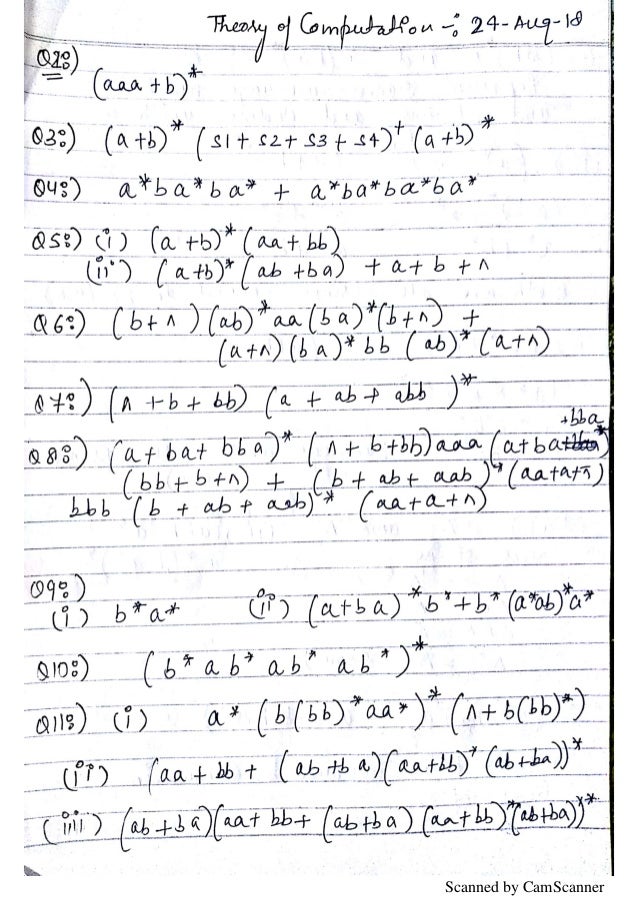 Theory of Computation -: 24-Aug-18
Q2:)
(aaa + b)*
Q3:) (a+b)* (S1 + S2 + S3 + S4)+ (a+b)*
Q4:) a*ba*ba* + a*ba*ba*ba*
Q5:) (i) (a+b)* (aa+bb)
(ii) (a+b)* (ab+ba) + a + b + ∧
Q6:) (b+∧)(ab)*aa(ba)*(b+∧) +
(a+∧)(ba)*bb (ab)* (a+∧)
Q7:) (∧ + b + bb) (a + ab + abb)*
+bba
Q8:) (a + ba + bba)* (∧ + b + bb) aaa (a + ba )*
(bb + b + ∧) + (b + ab + aab)* (aa+a+∧)
bbb (b + ab + aab)* (aa+a+∧)
Q9:)
(i) b*a* (ii) (a+ba)*b*+b*(a*ab)*a*
Q10:) (b* ab* ab* ab*)*
Q11:) (i) a* (b(bb)*aa*)* (∧+b(bb)*)
(ii) (aa + bb + (ab+ba)(aa+bb)*(ab+ba))*
(iii) (ab+ba)(aa+bb+(ab+ba)(aa+bb)*(ab+ba))**
Scanned by CamScanner